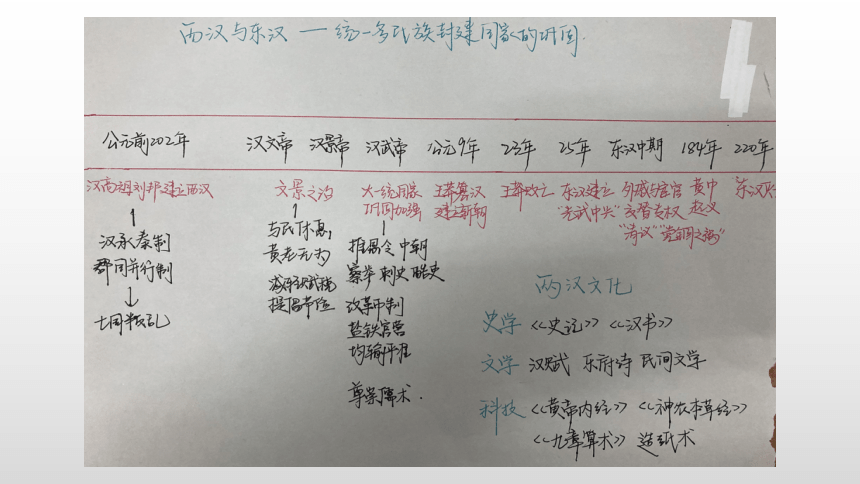 西汉与东汉 — 统一多民族封建国家的巩固.
公元前202年 汉文帝 汉景帝 汉武帝 公元9年 23年 25年 东汉中期 184年 220年
汉高祖刘邦建立西汉 文景之治 大一统国家 王莽篡汉 王莽败亡 东汉建立 外戚与宦官 黄巾 东汉
巩固加强 建立新朝 "光武中兴" 交替专权 起义
"清议" "党锢之祸"
汉承秦制
郡国并行制
七国叛乱
与民休息,
黄老无为
减轻赋税
提倡节俭
推恩令 中朝
察举 刺史 酷吏
改革币制
盐铁官营
均输平准
尊崇儒术.
两汉文化
史学 《史记》 《汉书》
文学 汉赋 乐府诗 民间文学
科技 《黄帝内经》 《神农本草经》
《九章算术》 造纸术